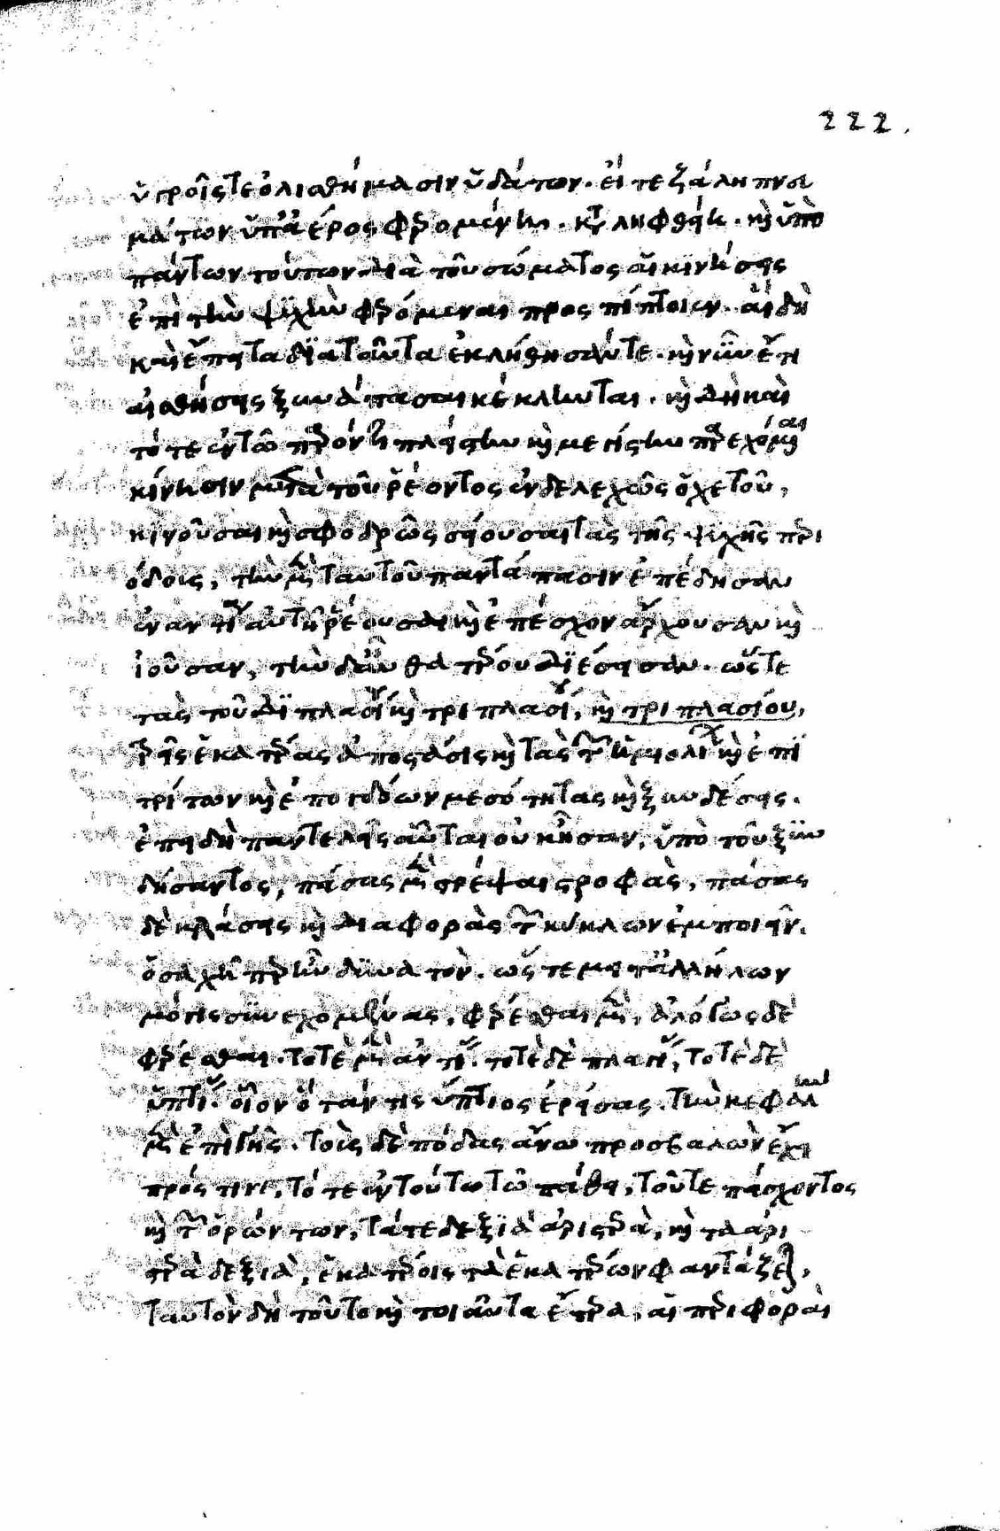 222.
ὑγροῖς τε ὀλισθήμασιν ὑδάτων. εἴτε ζάλῃ πνευ
μάτων ὑπ' ἀέρος φερομένων. καταληφθείη. καὶ ὑπὸ
πάντων τούτων διὰ τοῦ σώματος αἱ κινήσεις
ἐπὶ τὴν ψυχὴν φερόμεναι προσπίπτοιεν. αἳ δὴ
καὶ ἔπειτα διὰ ταῦτα ἐκλήθησάν τε. καὶ νῦν ἔτι
αἰσθήσεις ξυνάπασαι κέκληνται. καὶ δὴ καὶ
τότε ἐν τῷ παρόντι πλείστην καὶ μεγίστην παρεχόμεναι
κίνησιν μετὰ τοῦ ῥέοντος ἐνδελεχῶς ὀχετοῦ,
κινοῦσαι καὶ σφοδρῶς σείουσαι τὰς τῆς ψυχῆς περι
όδοις, τὴν μὲν ταυτοῦ παντάπασιν ἐπέδησαν
ἐναντία αὐτῇ ῥέουσαι καὶ ἐπέσχον ἄρχουσαν καὶ
ἰοῦσαν, τὴν δ' αὖ θατέρου διέσεισαν. ὥστε
τὰς τοῦ διπλασίου καὶ τριπλασίου, καὶ τριπλασίου,
τρεῖς ἑκατέρας ἀποστάσεις καὶ τὰς τῶν ἡμιολίων καὶ ἐπι
τρίτων καὶ ἐπογδόων μεσότητας καὶ ξυνδέσεις.
ἐπειδὴ παντελεῖς αὗται οὐκ ἦσαν, ὑπὸ τοῦ ξυν
δήσαντος, πάσας μὲν στρέψαι στροφάς, πάσας
δὲ κλάσεις καὶ διαφορὰς τῶν κύκλων ἐμποιεῖν.
ὁσαχῇπερ ἦν δυνατόν. ὥστε μετ' ἀλλήλων
μόγις συνεχομένας, φέρεσθαι μέν, ἀλόγως δὲ
φέρεσθαι. τοτὲ μὲν ἀντίας. τοτὲ δὲ πλαγίας, τοτὲ δὲ
ὑπτίας. οἷον ὅταν τις ὕπτιος ἐρείσας. τὴν κεφαλὴν
μὲν ἐπὶ γῆς. τοῖς δὲ πόδας ἄνω προσβαλὼν ἔχῃ
πρός τινι, τότε ἐν τούτῳ τῷ πάθει, τοῦ τε πάσχοντος
καὶ τῶν ὁρώντων, τά τε δεξιὰ ἀριστερὰ, καὶ τὰ ἀρι
στερὰ δεξιὰ, ἑκατέροις τὰ ἑκατέρων φαντάζεται,
ταυτὸν δὴ τοῦτο καὶ τοιαῦτα ἕτερα, αἱ περιφοραὶ